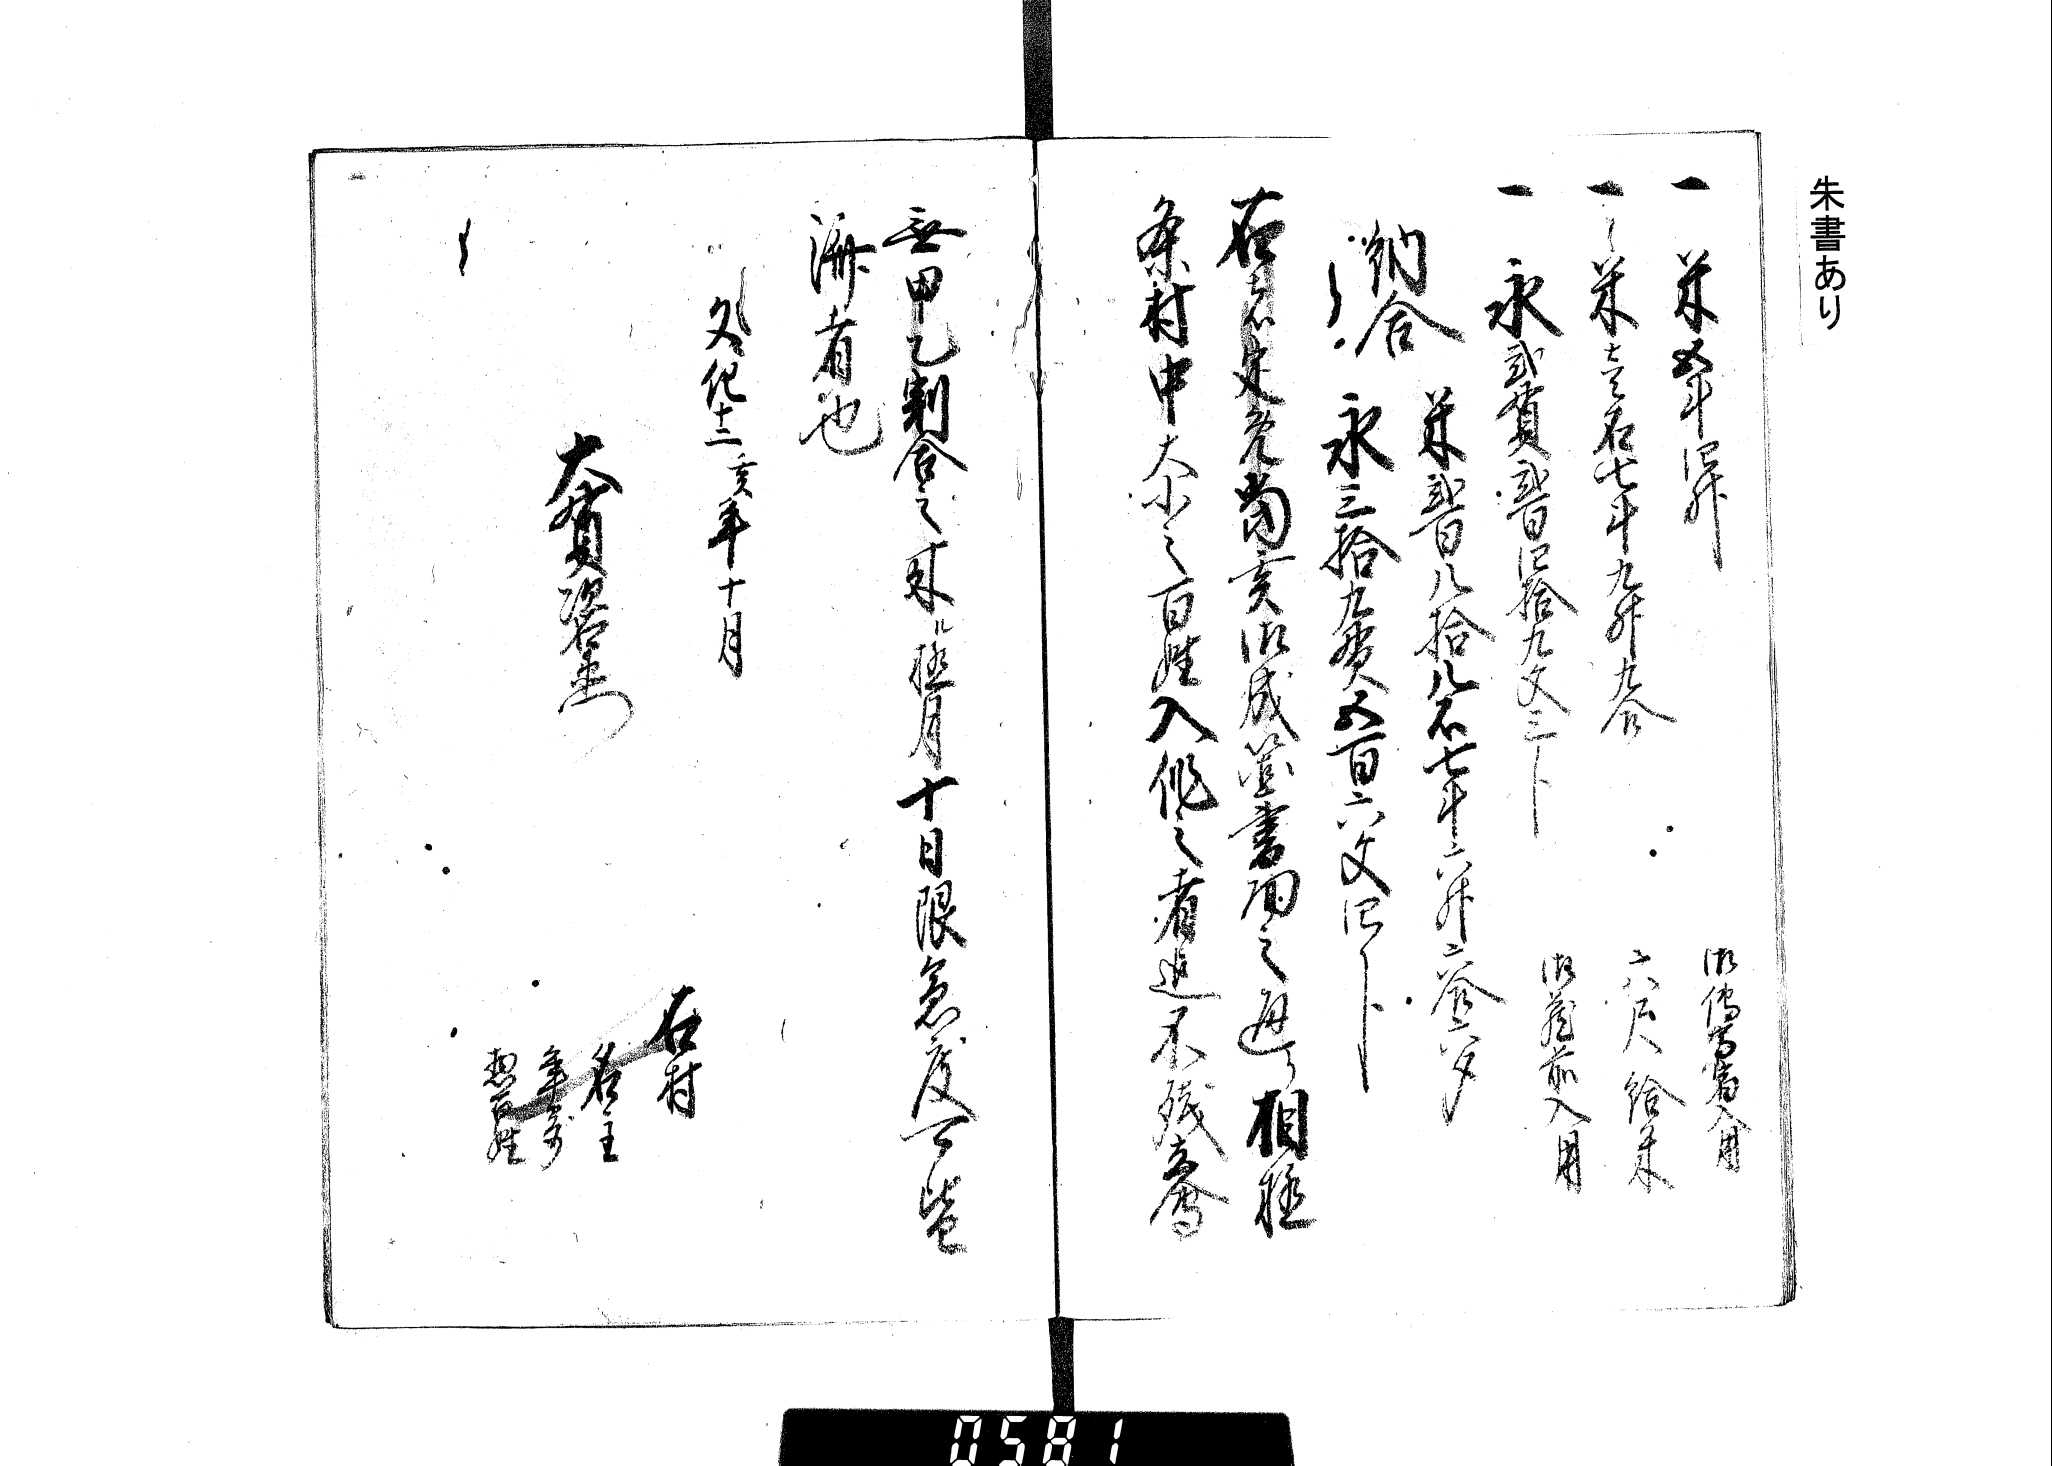 朱書あり
一 米五斗四升 御伝馬宿入用
一 米壱石七斗九升九合 六尺給米
一 永弐貫弐百四拾九文三分 御蔵前入用
納合 米弐百八拾八石七斗六升六合六夕
永三拾九貫五百六文四分
右者定免当亥御成箇書面之通り相極
条村中大小之百姓入作之者迄不残立会
無甲乙割合之来ル極月十日限急度可皆
済者也
文化十二亥年十月
大貫次右衛門
右村
名主
年寄
惣百姓
0581